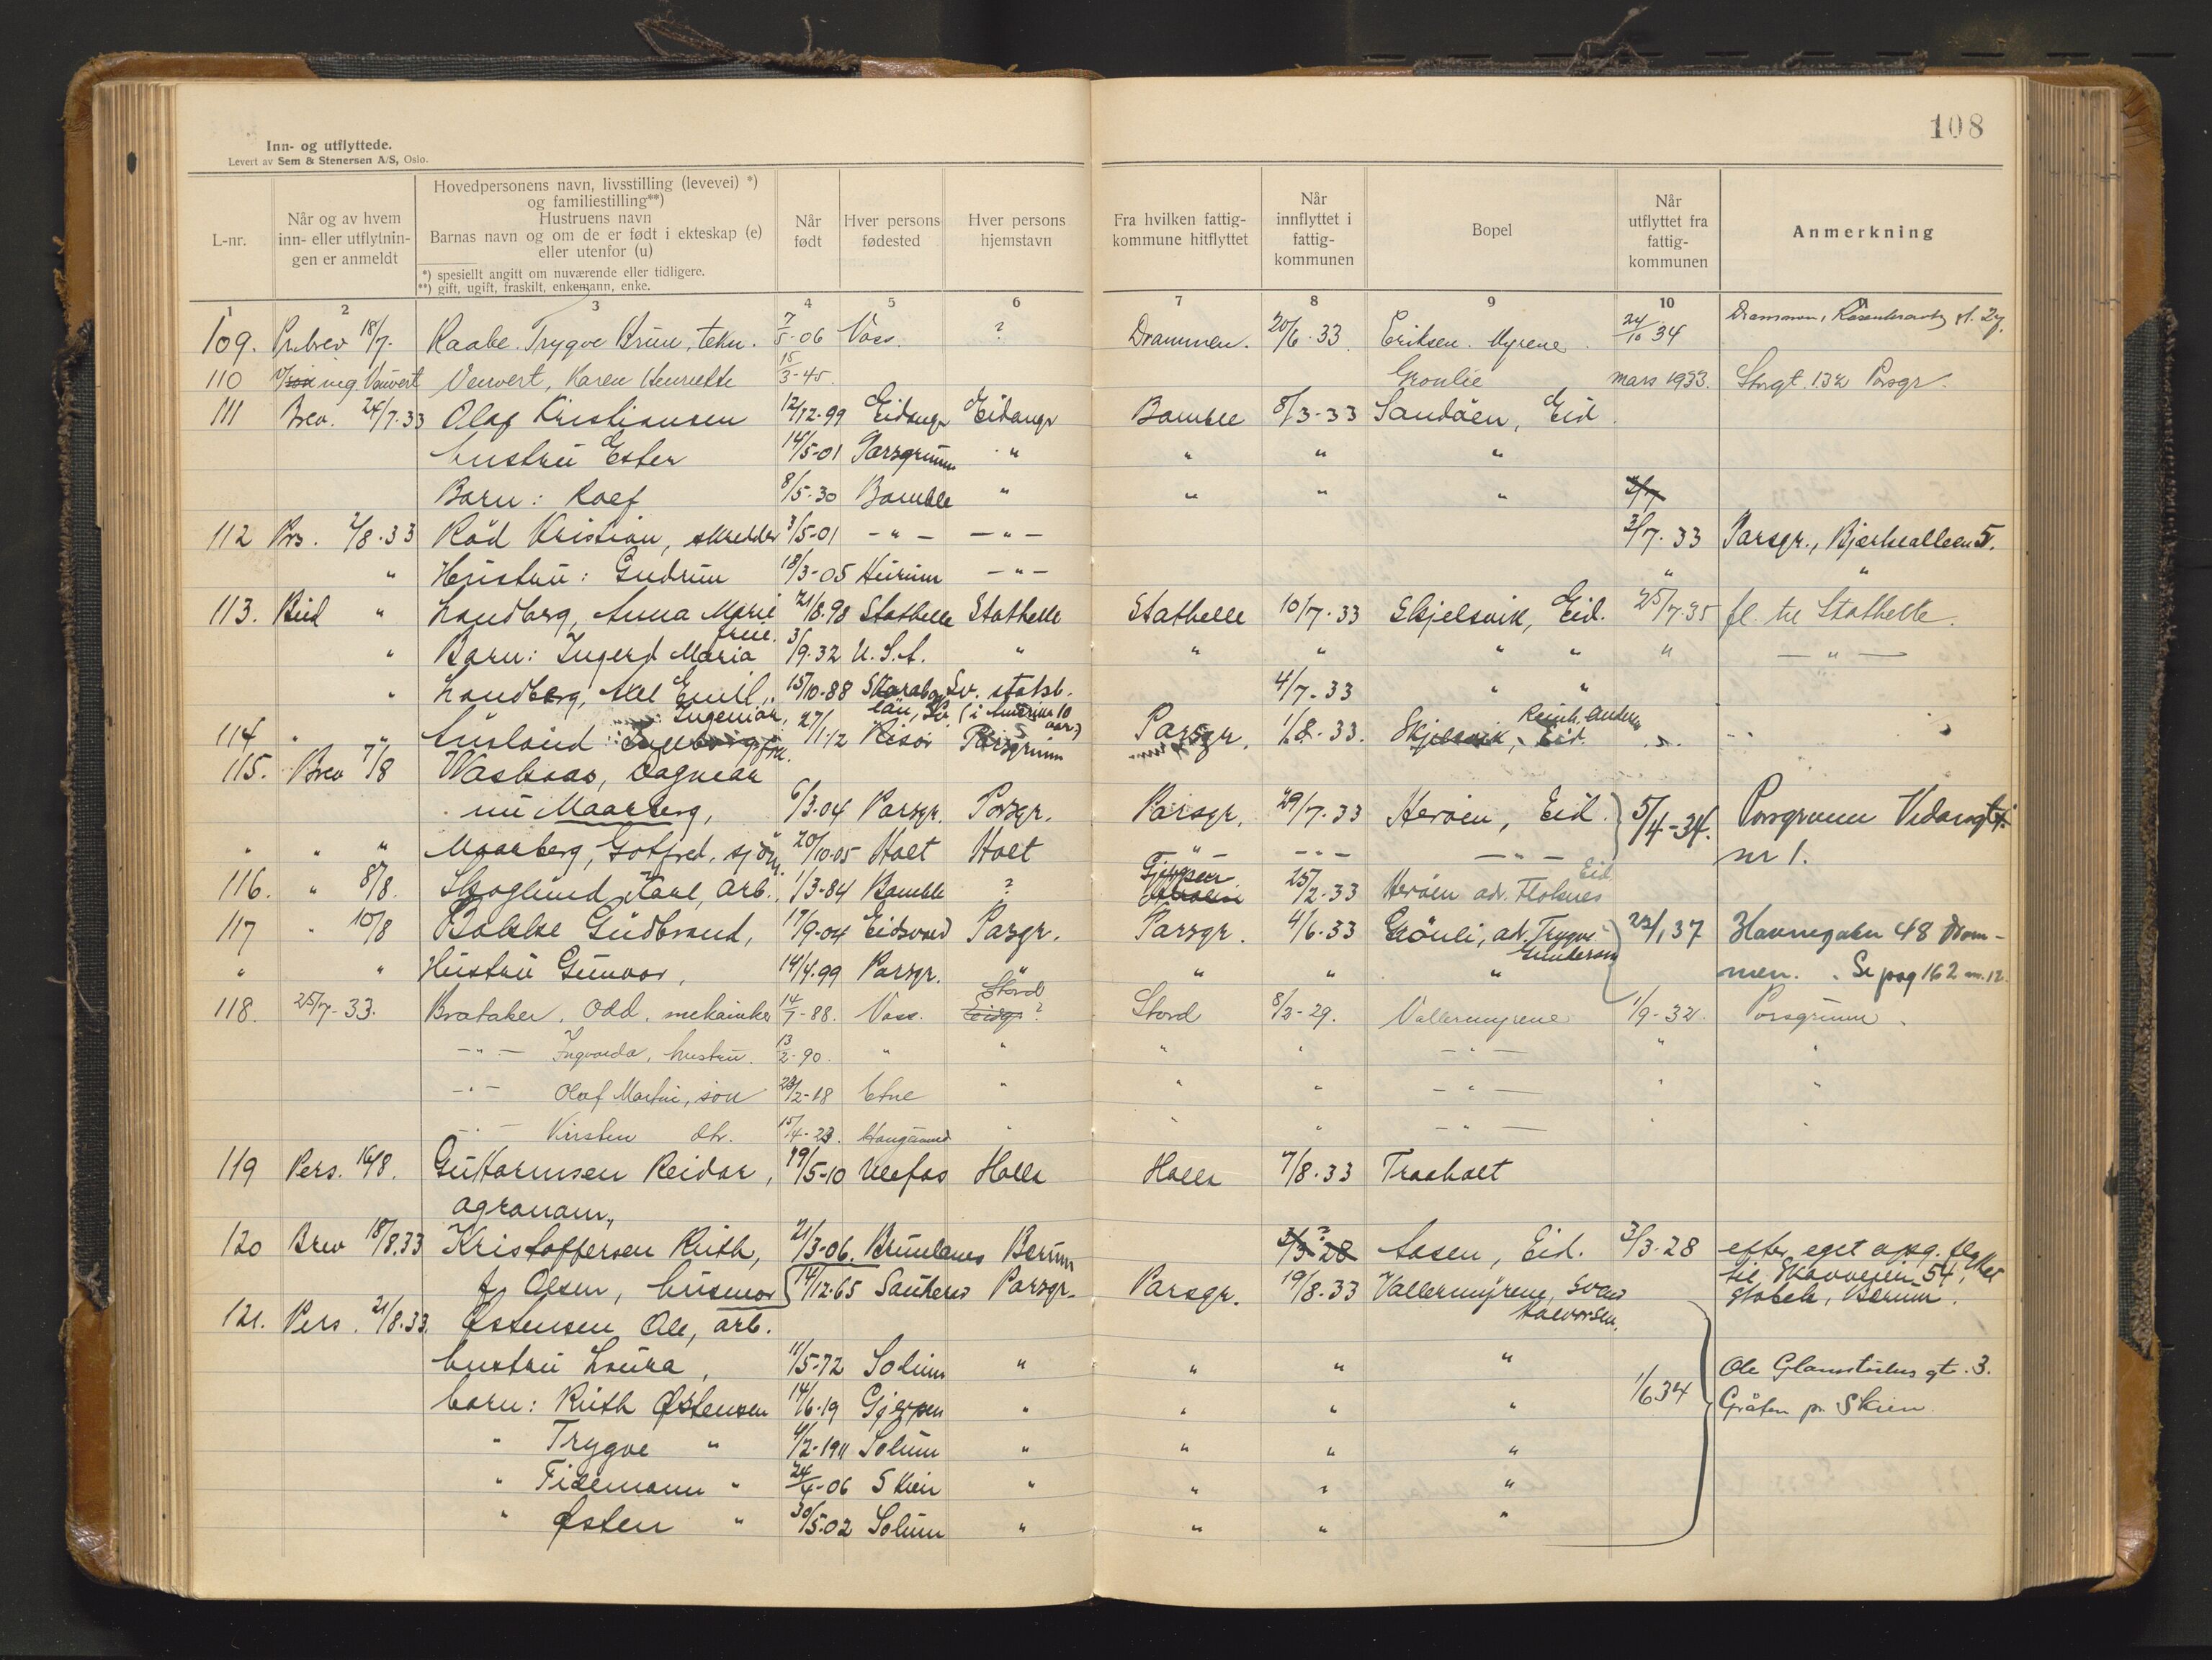 108
Inn- og utflyttede.
Levert av Sem & Stenersen A/S, Oslo.
L-nr.
Når og av hvem inn- eller utflytnin-gen er anmeldt
Hovedpersonens navn, livsstilling (levevei) *)
og familiestilling**)
Hustruens navn
Barnas navn og om de er født i ekteskap (e)
eller utenfor (u)
*) spesiellt angitt om nuværende eller tidligere.
**) gift, ugift, fraskilt, enkemann, enke.
Når født
Hver persons fødested
Hver persons hjemstavn
Fra hvilken fattig-kommune hitflyttet
Når innflyttet i fattig-kommunen
Bopel
Når utflyttet fra fattig-kommunen
Anmerkning
1 2 3 4 5 6 7 8 9 10
109. 18/7. Raabe Trygve Brun, tekn. 7/5-06 Voss. ? Drammen. 20/6.33. Eriksen. Myrene. 24/10 34
110 Karen Henriette 15/3-45. Grønlie mars 1933. Storgt. 132 Porsgr.
111 Brev. 24/7.33 Olaf Kristiansen 12/12-99 Eidangr Eidangr Bamble 8/3-33 Sandøen, Eid.
hustru Ester 14/5-01 Porsgrunn " " " "
Barn: Roef 8/5.30 Bamble " " " "
112 Prs. 2/8.33 Rød Kristian, skredder 3/5-01 - " - - " - 3/7.33 Porsgr., Bjerkealleen 5.
" Hustru: Gudrun 18/3-05 Hurum - " - " "
113. Bud " Landberg, Anna Marie frue. 21/8.98 Stathelle Stathelle Stathelle 10/7.33 Skjelsvik, Eid. 25/7.35 fl. til Stathelle.
" Barn: Ingerd Maria 3/9.32 U.S.A. " " " " " " - " -
" Landberg, Axel Emil, Ingeniør, 15/10-88 Skaraborg län, Sv. statsb. (i Amerika 10 aar) 4/7-33 " "
114 " " Ausland 27/1-12 Risør Porsgrunn Porsgr. 1/8-33. Skjelsvik, Eid.
115. Brev 7/8 Waskaas, Dagmar
nu Maarberg, 6/3.04 Porsgr. Porsgr. Porsgr. 29/7.33 Herøen, Eid. 5/4-34. Porsgrunn Vidarsgt.
" " " Maarberg, Gotfred, sjøm. 20/10.05 Holt Holt " - " - - " - nr 1.
116. " 8/8. Skoglund Karl, arb. 1/3-84 Bamble ? Gjerpen 25/2-33 Herøen ad. Floknes Eid
117 " 10/8 Bakke Gudbrand, 17/9-04 Eidsvold Porsgr. Porsgr. 4/6.33 Grönli, ad. Trygve Gundersen 23/1 37 Havnegaten 48 Dram-
" " Hustru Gunvor, 14/4.99 Porsgr. " " " " men. Se pag 162 nr. 12.
118. 25/7-33. Brataker, Odd, mekaniker 14/7-88. Voss. Stord Eidgr ? Stord 8/2-29. Vallermyrene 1/9-32. Porsgrunn.
- " - Ingvarda, hustru. 13/2-90. " " " " - " - " "
- " - Olaf Martin, sön 23/2-18 Etne " " " - " - " "
- " - Kirsten dtr. 15/4-23. Haugesund " " " - " - " "
119 Pers. 16/8. Guttormsen Reidar, 19/5-10 Ulefos Holla Holla 7/8.33 Traaholt
agronom,
120 Brev 18/8.33 Kristoffersen Ruth, 21/3-06. Brunlanes Berum 3/3 28 Aasen, Eid. 3/3-28 efter eget opsg. flyttet
f. Olsen, husmor 14/12-65 Sauherad Porsgr. Porsgr. 19/8.33 Vallermyrene, Svend Halvorsen. til Skovveien 54, Stabek, Bærum.
121. Pers. 21/8.33. Østensen Ole, arb.
hustru Laura, 11/5-72 Solum " " " " Ole Glamstødus gt. 3.
barn: Ruth Østensen 14/6-19 Gjerpen " " " " 1/6 34 Gråten pr. Skien.
" Trygve " 4/2-1911 Solum " " " "
" Fidemann " 24/4-06 Skien " " " "
" Østen " 30/5.02 Solum " " " "